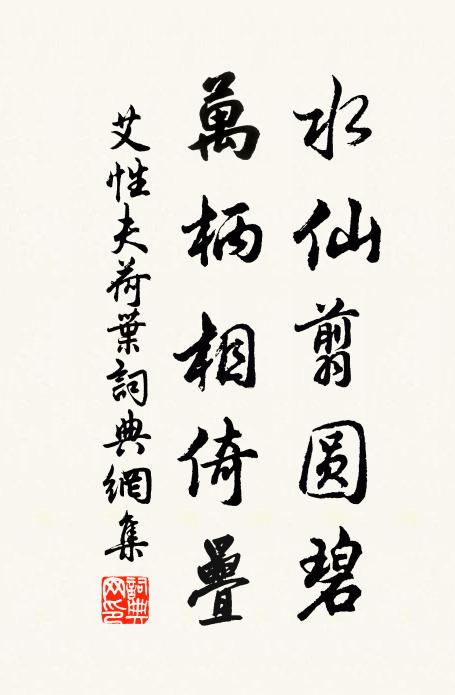 水仙翦圆碧
萬柄相倚疊
艾性夫荷葉詞典網集
詞典网印